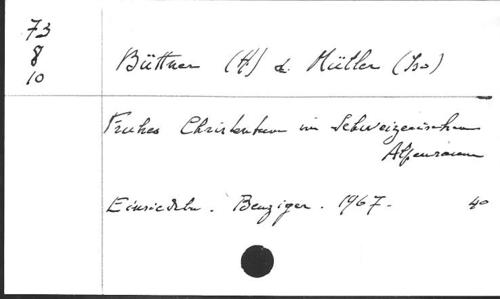 73
8
10
Büttner (H) & Müller (Iso)
Frühes Christentum im Schweizerischen
Alpenraum
Einsiedeln. Benziger. 1967. 40